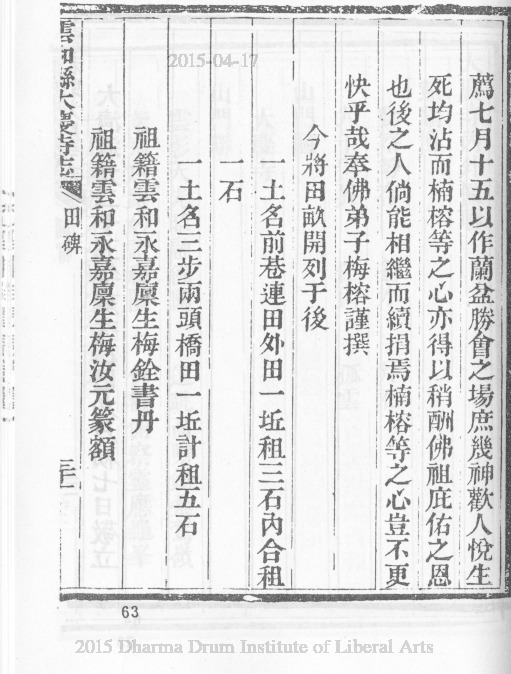 2015-04-17
薦七月十五以作蘭盆勝會之場庶幾神歡人悅生
死均沾而楠榕等之心亦得以稍酬佛祖庇佑之恩
也後之人倘能相繼而續捐焉楠榕等之心豈不更
快乎哉奉佛弟子梅榕謹撰
今將田畝開列于後
一土名前巷連田外田一坵租三石內合租
一石
一土名三步兩頭橋田一坵計租五石
祖籍雲和永嘉廩生梅銓書丹
祖籍雲和永嘉廩生梅汝元篆額
雲和縣大慶寺志
田碑
63
2015 Dharma Drum Institute of Liberal Arts